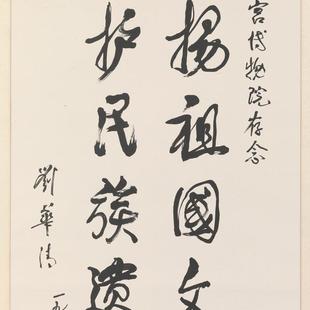 宫博物院存念
扬祖國文
护民族遗
劉華清
一九